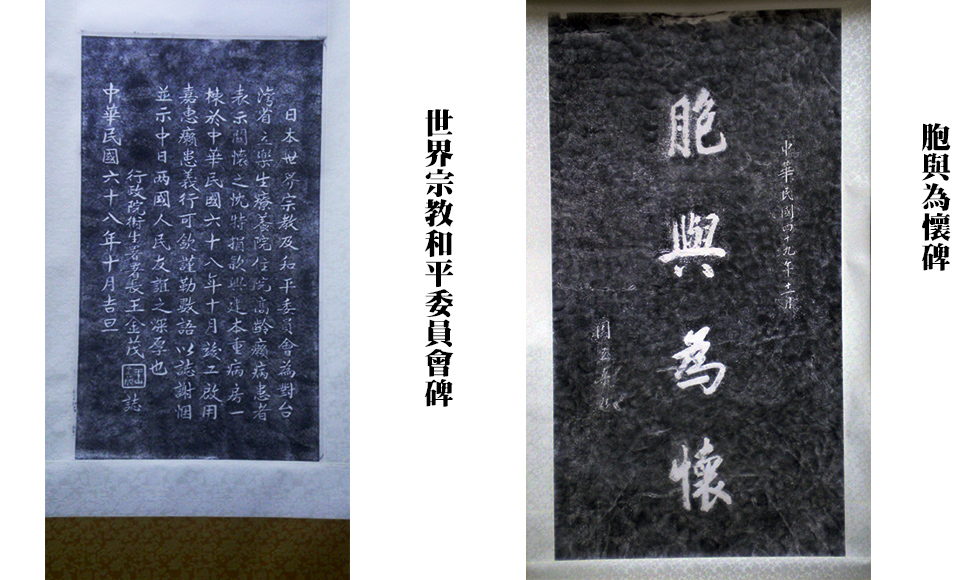 胞與為懷碑
中華民國四十九年
胞與為懷
周至柔
世界宗教和平委員會碑
日本世界宗教及和平委員會為對台
灣省立樂生療養院住院高齡癩病患者
表示關懷之忱特捐款興建本重病房一
棟於中華民國六十八年十月竣工啟用
嘉惠癩患義行可欽謹勒數語以誌謝悃
並示中日兩國人民友誼之深厚也
行政院衛生署署長王金茂 誌
中華民國六十八年十月吉旦